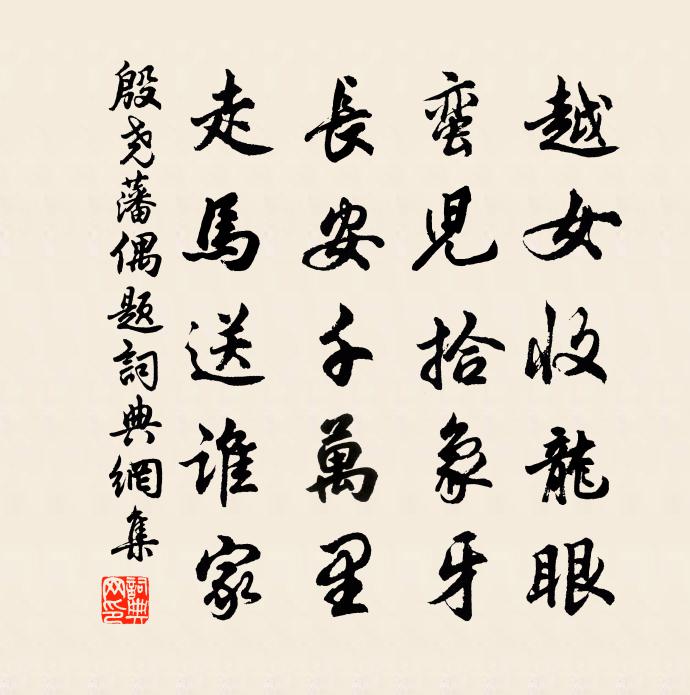 越女收龍眼
蛮児拾象牙
長安千萬里
走馬送谁家
殷尧藩偶題詞典網集
詞典網印